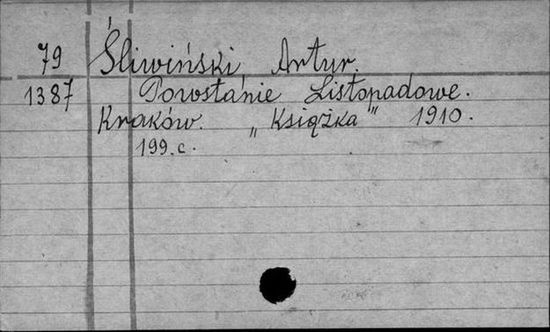 79 Śliwiński Artur.
1387 Powstanie Listopadowe.
Kraków. „Książka” 1910.
199.c.